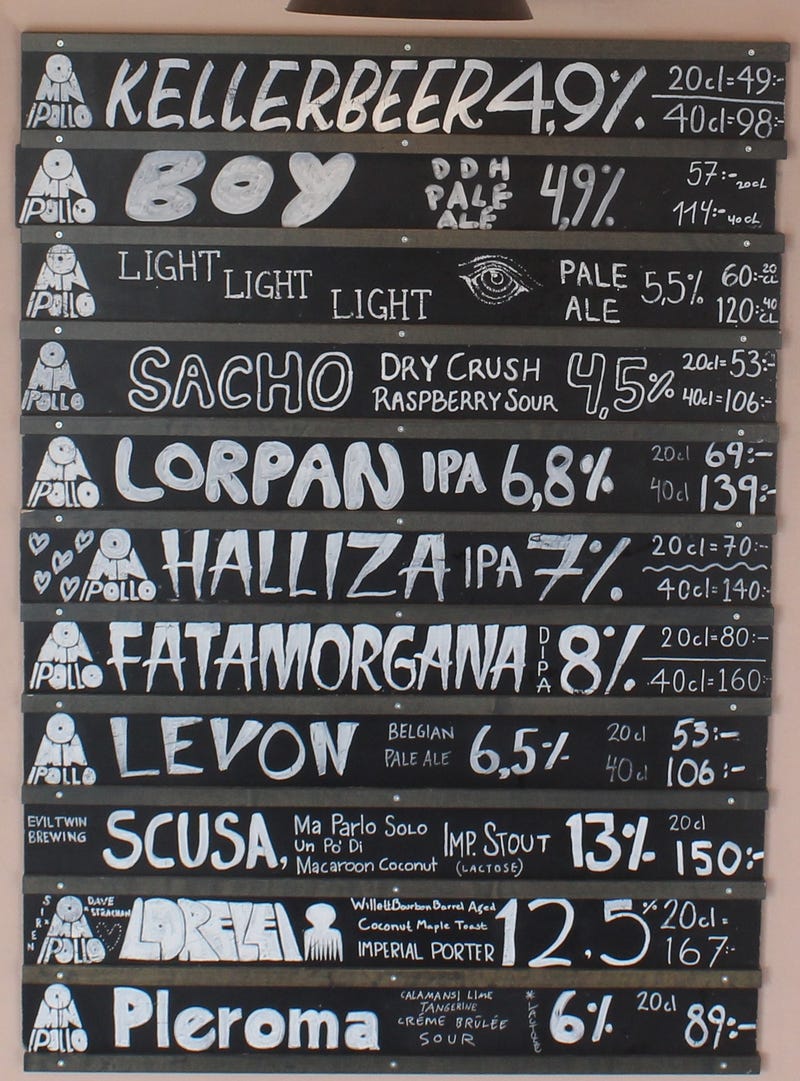 OMNiPOLLO KELLERBEER 4,9% 20cl=49:-
40cl=98:-
OMNiPOLLO BOY DDH PALE ALE 4,9% 57:- 20cl
114:- 40cl
OMNiPOLLO LIGHT LIGHT LIGHT PALE ALE 5,5% 60:- 20 CL
120:- 40 CL
OMNiPOLLO SACHO DRY CRUSH 4,5% 20cl=53:-
RASPBERRY SOUR 40cl=106:-
OMNiPOLLO LORPAN IPA 6,8% 20cl 69:-
40cl 139:-
OMNiPOLLO HALLIZA IPA 7% 20cl=70:-
40cl=140:-
OMNiPOLLO FATAMORGANA DIPA 8% 20cl=80:-
40cl=160:-
OMNiPOLLO LEVON BELGIAN 6,5% 20cl 53:-
PALE ALE 40cl 106:-
EVILTWIN
BREWING
SCUSA, Ma Parlo Solo
Un Po' Di
Macaroon Coconut
IMP. STOUT
(LACTOSE)
13% 20cl
150:-
SIREN x OMNiPOLLO DAVE
STRACHAN
LORELEI Willett Bourbon Barrel Aged
Coconut Maple Toast
IMPERIAL PORTER
12.5% 20cl=
167:-
OMNiPOLLO Pleroma CALAMANSI LIME
TANGERINE
CRÉME BRÛLÉE
SOUR
6% 20cl 89:-